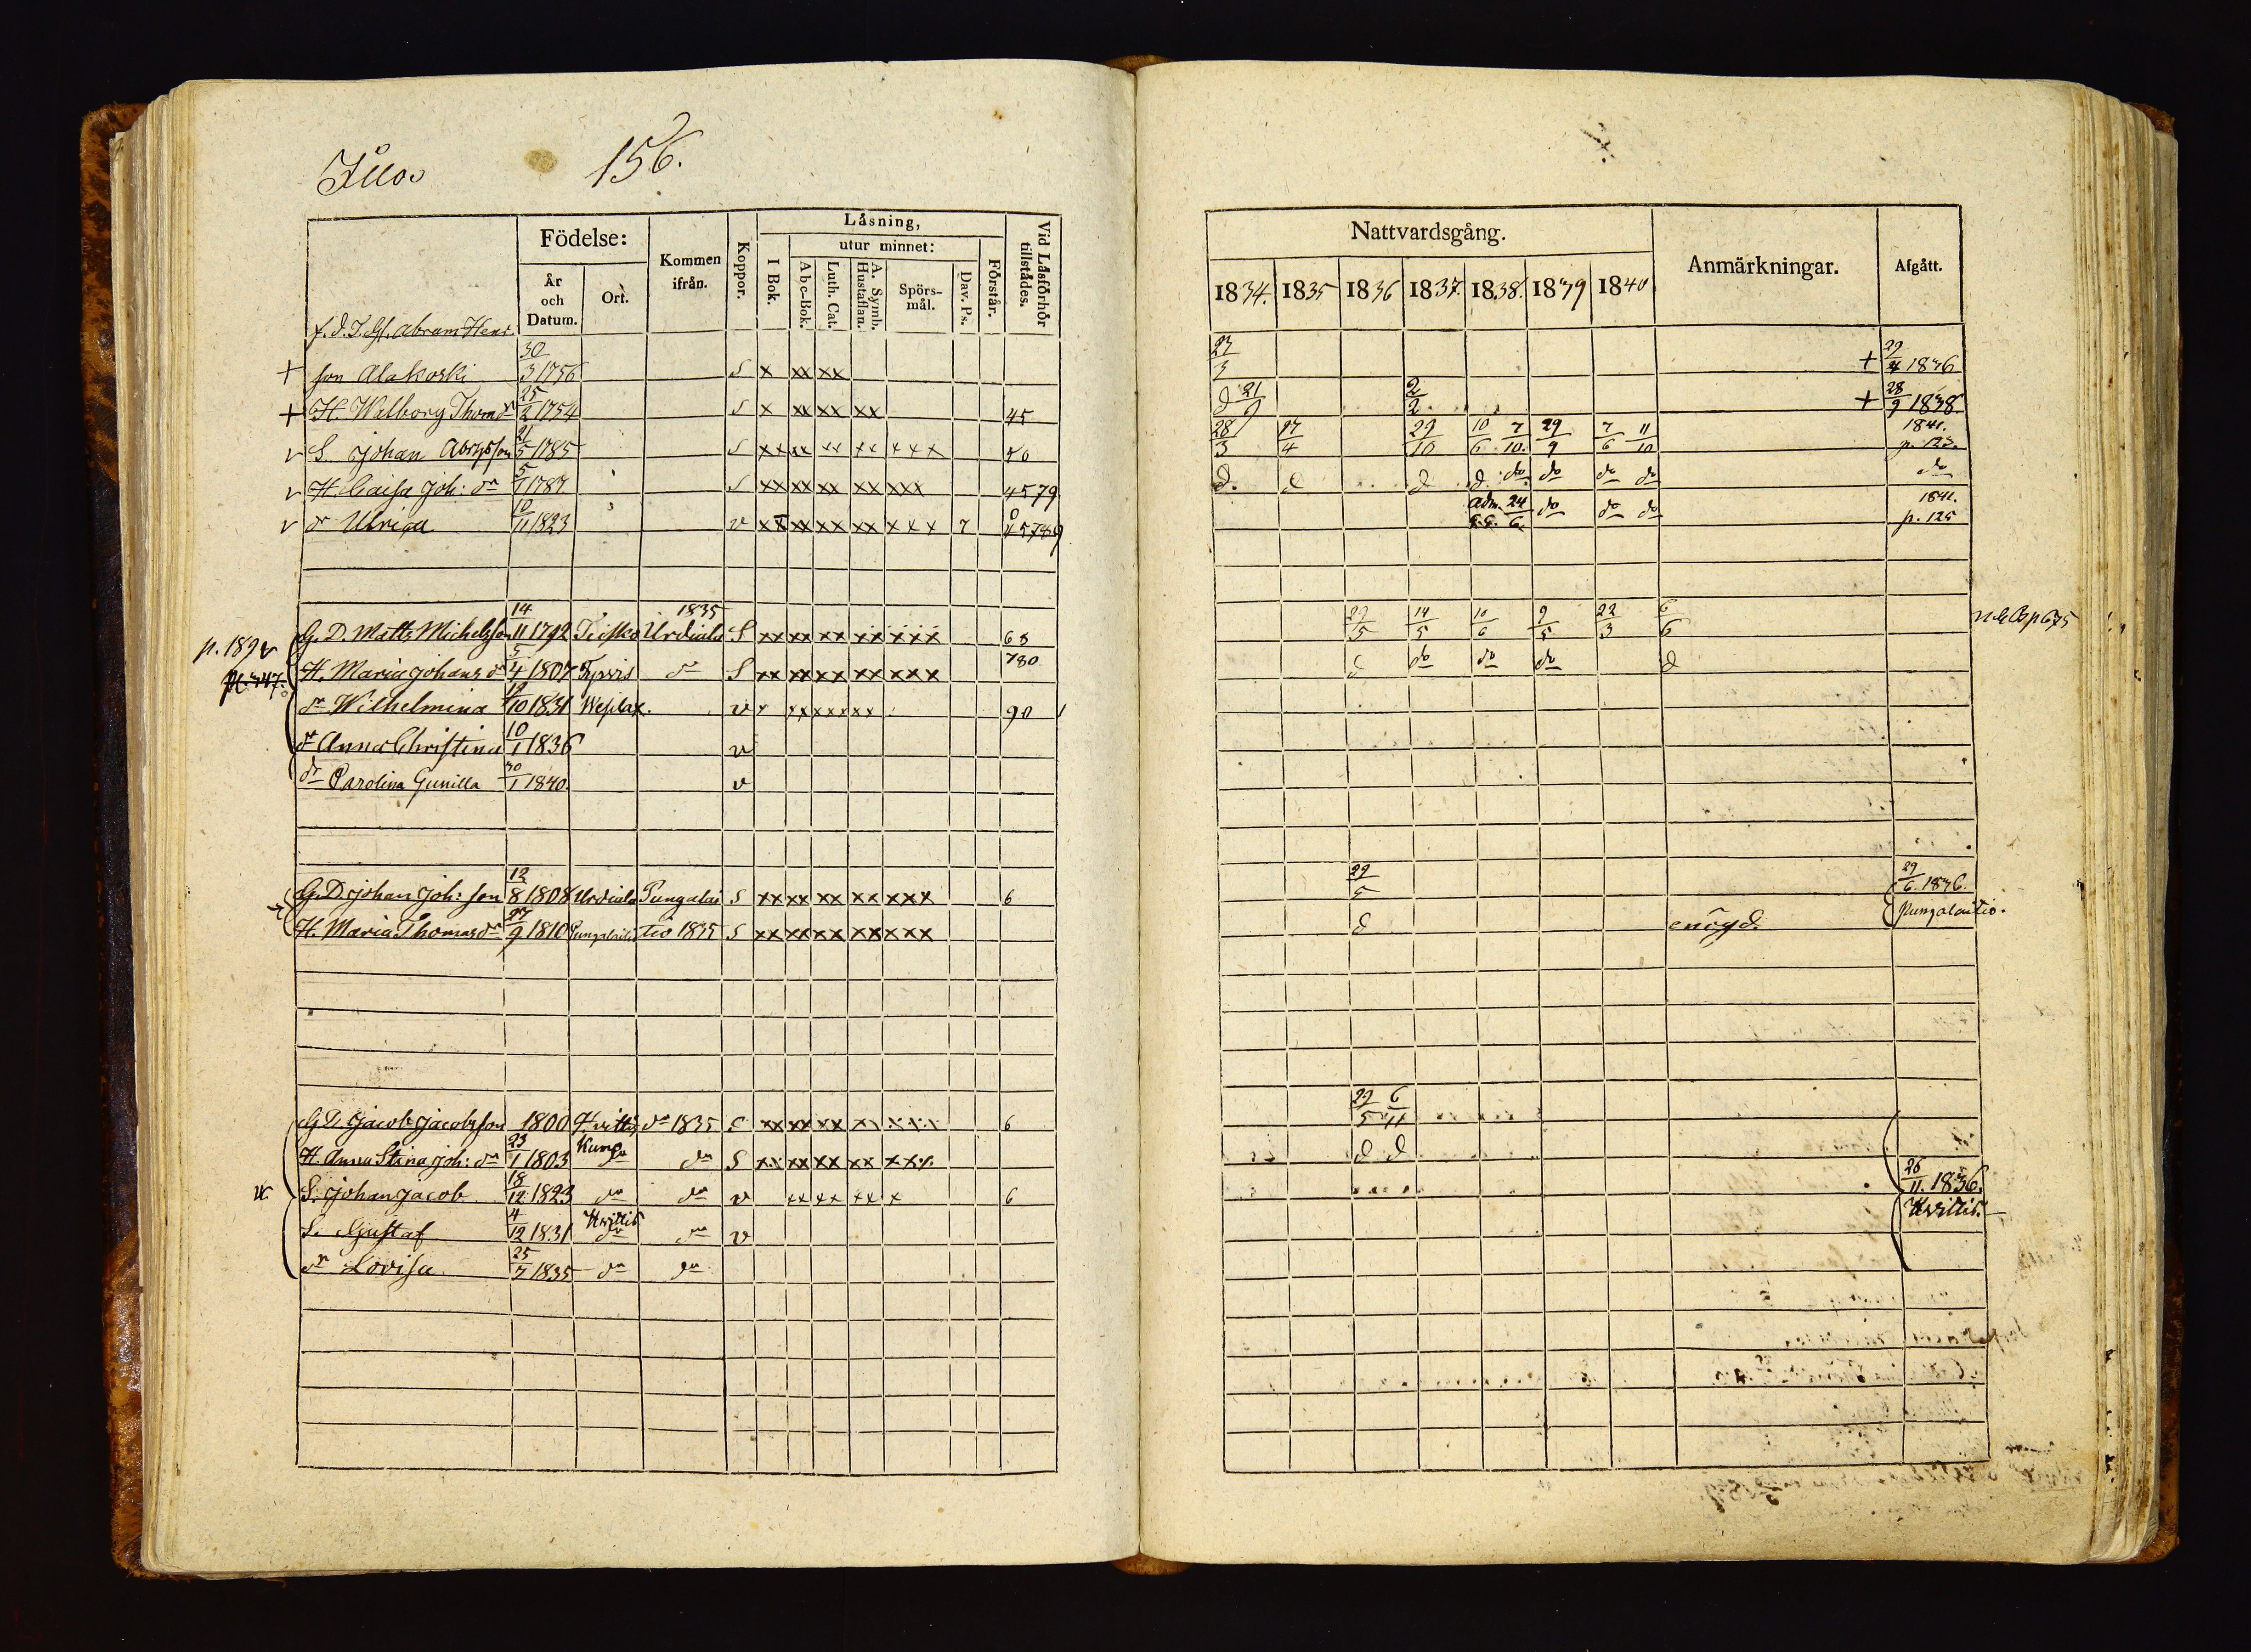 156.
Födelse:
År och Datum.
Ort.
Kommen ifrån.
Koppor.
Låsning,
utur minnet:
I Bok.
Abc-Bok.
Luth. Cat.
A. Symb. Hustaflan.
Spörs-mål.
Dav. Ps.
Förstår.
Vid Låsförhör tillstådes.
Nattvardsgång.
1834. 1835 1836 1837. 1838. 1839 1840
Anmärkningar.
Afgått.
Abram Henr
+ son Alakoski 30/3 1756 S x xx xx 27/3 + 29/4 1836
+ H. Walborg Thom dr 25/2 1754 S x xx xx xx 45 d 21/9 2/2 + 28/9 1838
v S. Johan Abrson 21/5 1785 S xx xx xx xx xxx 28/3 27/4 29/10 10/6 7/10. 29/9 7/6 11/10 1841. p. 125.
v H. Caisa Joh: dr 5/1 1787 S xx xx xx xx xxx 4579 d. d d d. do do do do do
v dr Ulrica 10/11 1823 v xx xx xx xx xxx 7 Adm. 24/6. do do do 1841. p. 125
1835
p. 189 v G. D. Matts Michelsson 14/11 1792 Urdiala S xx xx xx xx xxx 68 29/5 14/5 10/6 9/5 22/3 6/6
H. Maria Johans dr 5/4 1807 Tyrvis dr S xx xx xx xx xxx 780 d do do do d
dr Wilhelmina 12/10 1831 v x xx xx xx 90
dr Anna Christina 10/1 1836 v
dr Carolina Gunilla 30/1 1840. v
G. D. Johan Joh: son 12/8 1808 Urdiala Pungalai S xx xx xx xx xxx 6 29/5 29/6. 1836.
H. Maria Thomas dr 27/9 1810 Pungalaitio tio 1835 S xx xx xx xx xxx d enögd. Pungalaitio.
G. D. Jacob Jacobsson 1800 dr 1835 S xx xx xx xx xxx 6 29/5 6/11
H. Anna Stina Joh: dr 23/1 1803 dr S xx xx xx xx xxx d d
S. Johan Jacob 18/12 1823 dr dr v xx xx xx x 6 26/11. 1836.
S. Gustaf 4/12 1831 dr dr v
dr Lovisa 25/7 1835 dr dr